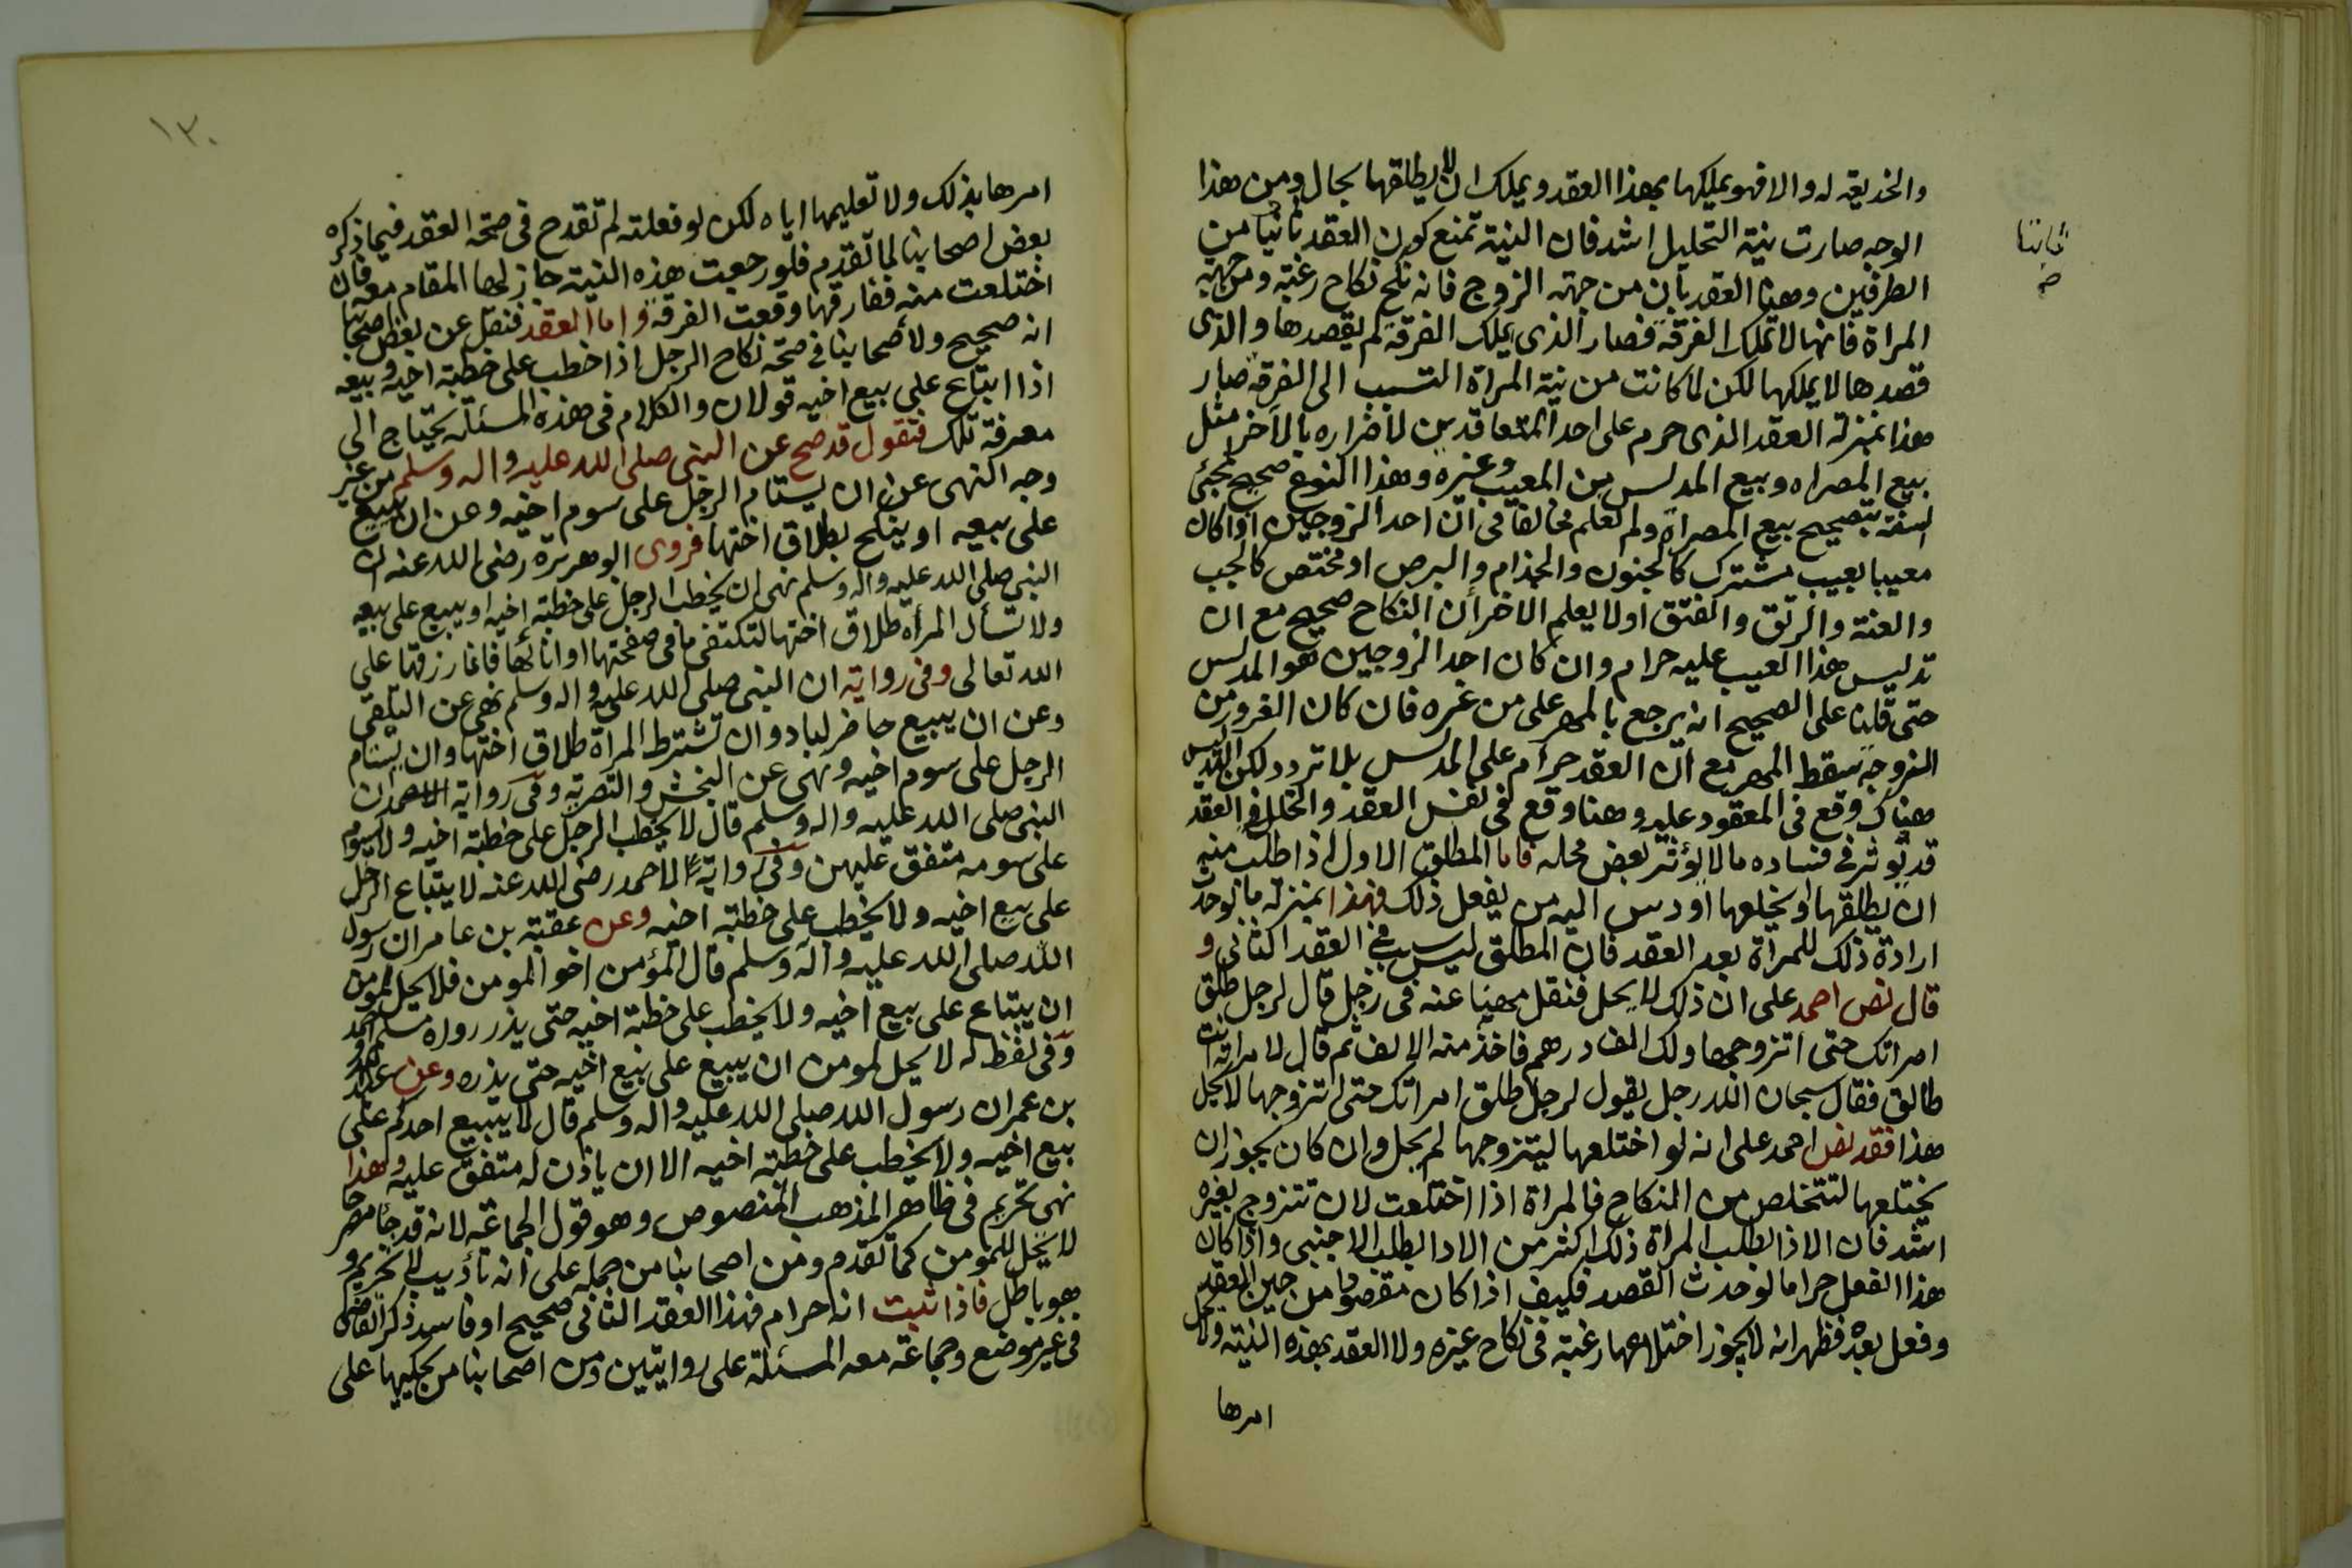 والخديعة له والا فهو يملكها بهذا العقد ويملك ان لا يطلقها بحال ومن هذا
الوجه صارت نية التحليل اشد فان النية تمنع كون العقد ثابتا من
ثابتا
الطرفين وهنا العقد ثابت من جهة الزوج فانه نكح نكاح رغبة ومن جهة
المراة فانها لا تملك الفرقة فصار الذى يملك الفرقة لم يقصدها والذى
قصدها لا يملكها لكن لما كانت من نية المراة التسبب الى الفرقة صار
هذا بمنزلة العقد الذى حرم على احد المتعاقدين لاضراره بالاخر مثل
بيع المصراه وبيع المدلس من المعيب وغيره وهذا النوع صحيح لمجئ
السنة بتصحيح بيع المصراة ولم نعلم مخالفا فى ان احد الزوجين اذا كان
معيبا بعيب مشترك كالجنون والجذام والبرص او مختص كالجب
والعنة والرتق والفتق اولا يعلم الاخر ان النكاح صحيح مع ان
تدليس هذا العيب عليه حرام وان كان احد الزوجين هو المدلس
حتى قلنا على الصحيح انه يرجع بالمهر على من غره فان كان الغرور من
الزوجة سقط المهر مع ان العقد حرام على المدلس بلا تردد لكن التدليس
هناك وقع فى المعقود عليه وهنا وقع فى نفس العقد والخلل فى العقد
قد يؤثر فى فساده ما لا يؤثر بعض محله فاما المطلق الاول اذا طلب منه
ان يطلقها او يخلعها او دس اليه من يفعل ذلك فهذا بمنزلة ما لو حدث
ارادة ذلك للمراة بعد العقد فان المطلق ليس سبب فى العقد الثانى و
قال نص احمد على ان ذلك لا يحل فنقل مهنا عنه فى رجل قال لرجل طلق
امراتك حتى اتزوجها ولك الف درهم فاخذ منه الالف ثم قال لامراته انت
طالق فقال سبحان الله رجل يقول لرجل طلق امراتك حتى اتزوجها لا يحل
هذا فقد نص احمد على انه لو اختلعها ليتزوجها لم يحل وان كان يجوز ان
يختلعها لتتخلص من النكاح فالمراة اذا اختلعت لان تتزوج بغيره
اشد فان الاذا بطلب المراة ذلك اكثر من الاذا بطلب الاجنبى واذا كان
هذا الفعل حراما لو حدث القصد فكيف اذا كان مقصودا من حين العقد
وفعل بعده فظهر انه لا يجوز اختلاعها رغبة فى نكاح غيره ولا العقد بهذه النية ولا يحل
امرها
١٣٠
امرها بذلك ولا تعليمها اياه لكن لو فعلته لم تقدح فى صحة العقد فيما ذكره
بعض اصحابنا لما تقدم فلو رجعت هذه النية جاز لها المقام معه فان
اختلعت منه ففارقها وقعت الفرقة واما العقد فنقل عن بعض اصحابنا
انه صحيح ولاصحابنا فى صحة نكاح الرجل اذا خطب على خطبة اخيه وبيعه
اذا ابتاع على بيع اخيه قولان والكلام فى هذه المسئلة يحتاج الى
معرفة تلك فنقول قد صح عن النبى صلى الله عليه واله وسلم من غير
وجه النهى عن ان يستام الرجل على سوم اخيه وعن ان يبيع
على بيعه او ينكح بطلاق اختها فروى ابو هريرة رضى الله عنه ان
النبى صلى الله عليه واله وسلم نهى ان يخطب الرجل على خطبة اخيه او يبيع على بيعه
ولا تسأل المرأه طلاق اختها لتكتفى ما فى صفحتها او انائها فانما رزقها على
الله تعالى وفى رواية ان النبى صلى الله عليه واله وسلم نهى عن التلقى
وعن ان يبيع حاضر لباد وان تشترط المراة طلاق اختها وان يستام
الرجل على سوم اخيه ونهى عن النجش والتصرية وفى رواية لاحمد ان
النبى صلى الله عليه واله وسلم قال لا يخطب الرجل على خطبة اخيه ولا يسوم
على سومه متفق عليهن وفى رواية لاحمد رضى الله عنه لا يبتاع الرجل
على بيع اخيه ولا يخطب على خطبة اخيه وعن عقبة بن عامر ان رسول
الله صلى الله عليه واله وسلم قال المؤمن اخو المومن فلا يحل لمومن
ان يبتاع على بيع اخيه ولا يخطب على خطبة اخيه حتى يذر رواه مسلم واحمد
وفى لفظ له لا يحل لمومن ان يبيع على بيع اخيه حتى يذره وعن عبد الله
بن عمران رسول الله صلى الله عليه واله وسلم قال لا يبيع احدكم على
بيع اخيه ولا يخطب على خطبة اخيه الا ان ياذن له متفق عليه وهذا
نهى تحريم فى ظاهر المذهب المنصوص وهو قول الجماعة لانه قد جاء مصرحا
لا يحل للمومن كما تقدم ومن اصحابنا من حمله على انه تأديب لا تحريم و
هو باطل فاذا ثبت انه حرام فهذا العقد الثانى صحيح او فاسد ذكر القاضى
فى غير موضع وجماعة معه المسئلة على روايتين ومن اصحابنا من يحكيها على